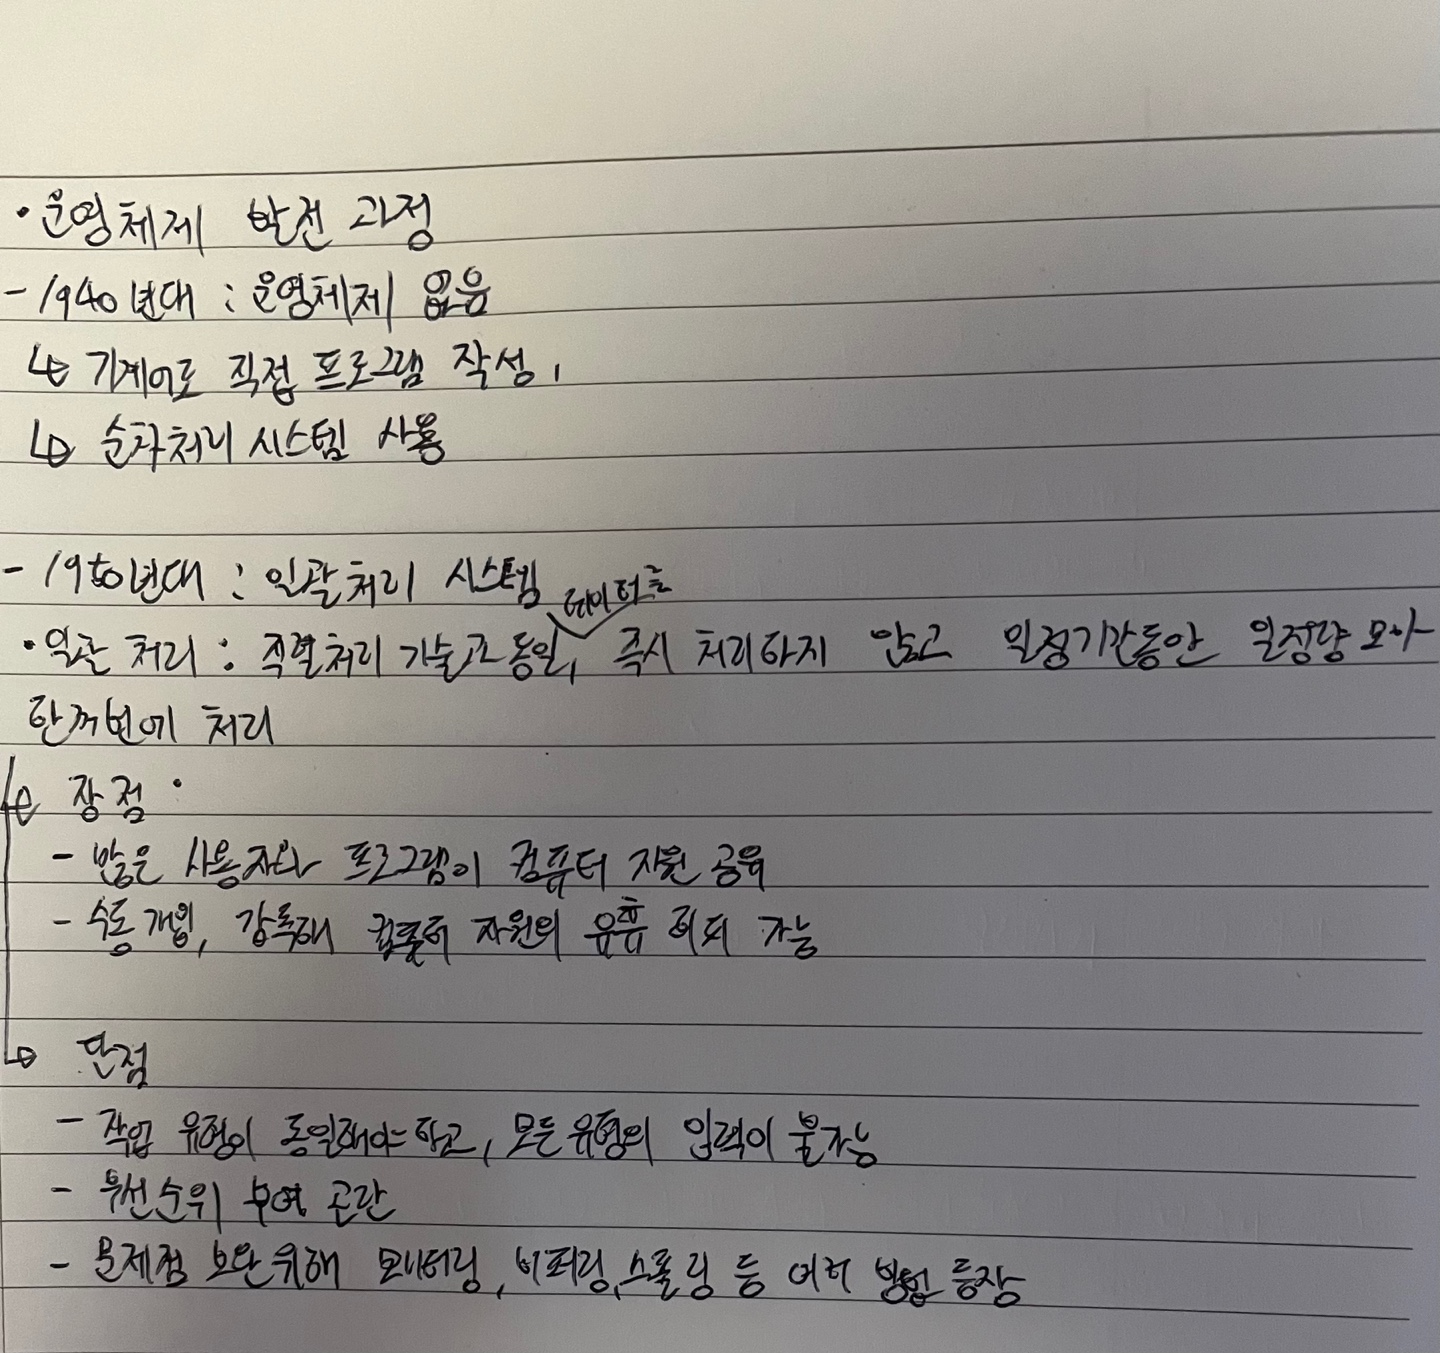 • 운영체제 발전 과정
- 1940년대 : 운영체제 없음
↳ 기계어로 직접 프로그램 작성,
↳ 순차처리 시스템 사용
- 1950년대 : 일괄처리 시스템
데이터를
• 일괄 처리 : 직렬처리 기술과 동일, 즉시 처리하지 않고 일정기간동안 일정량 모아
한꺼번에 처리
↳ 장점
- 많은 사용자와 프로그램이 컴퓨터 자원 공유
- 수동 개입, 감독해 컴퓨터 자원의 유휴 회피 가능
↳ 단점
- 작업 유형이 동일해야하고, 모든유형의 입력이 불가능
- 우선순위 부여 곤란
- 문제점 보완위해 모니터링, 버퍼링, 스풀링 등 여러 방법 등장